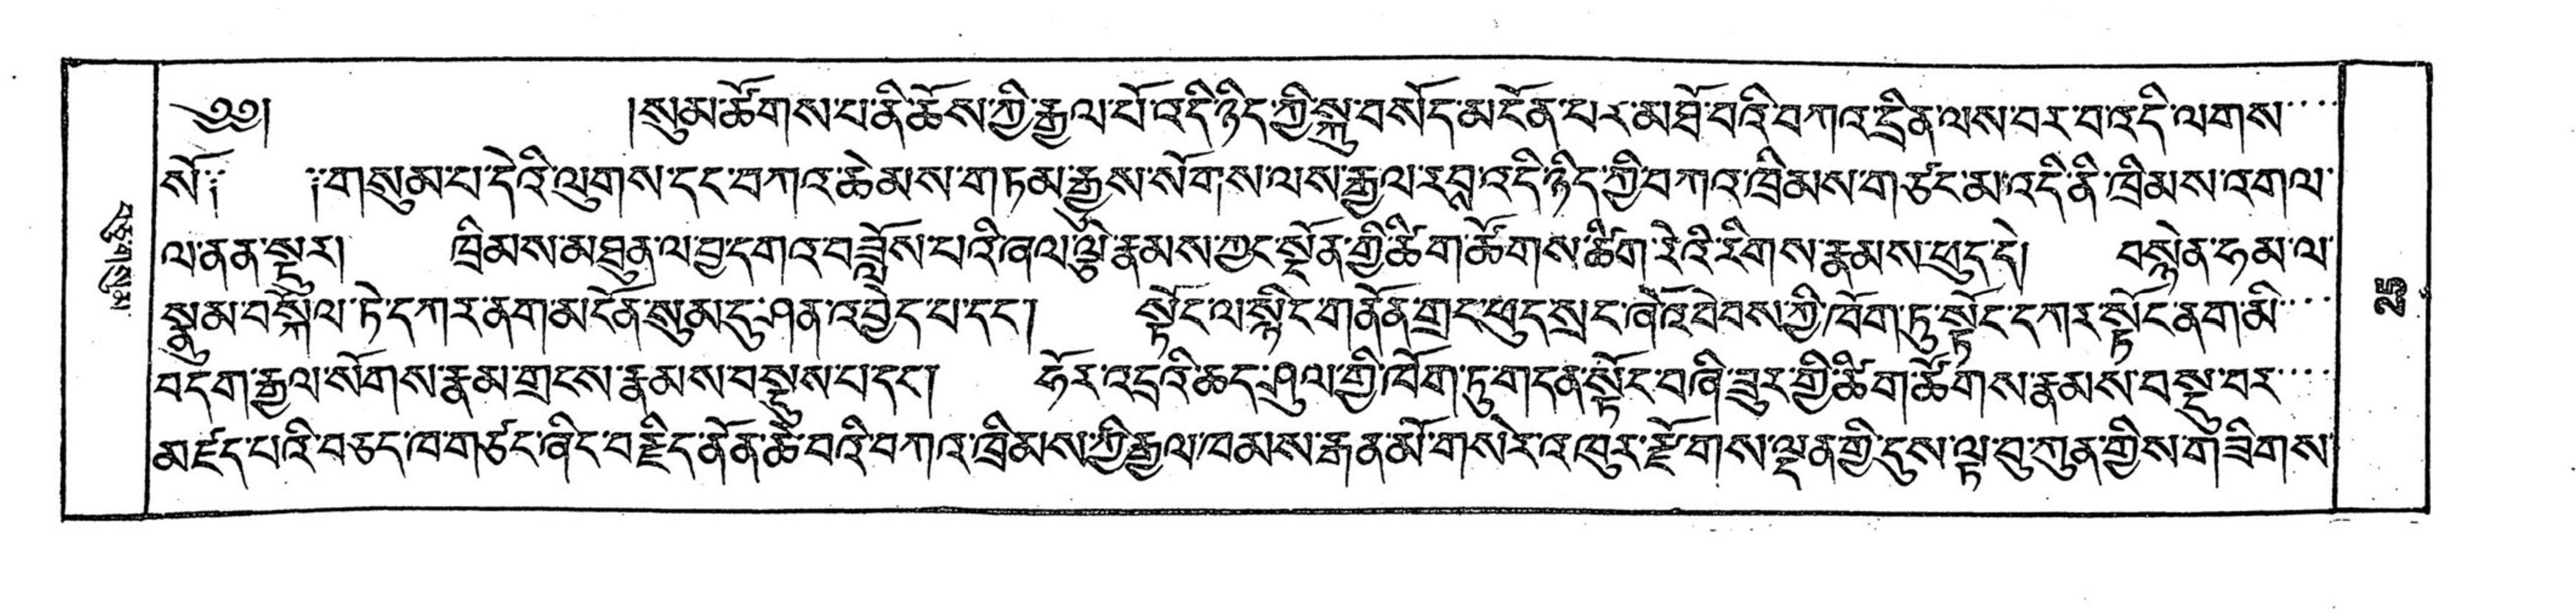 ༄༅། །སུམ་ཚོགས་པ་ནི་ཆོས་ཀྱི་རྒྱལ་པོ་འདི་ཉིད་ཀྱི་སྐུ་བསོད་མངོན་པར་མཐོ་བའི་བཀའ་དྲིན་ལས་བར་བ་འདི་ལགས་
སོ༔ ༔གསུམ་པ་དེའི་ལུགས་དང་བཀའ་ཆེམས་གཏམ་རྒྱས་སོགས་ལས་རྒྱལ་རབྭ་འདི་ཉིད་ཀྱི་བཀའ་ཁྲིམས་གཙང་མ་འདི་ནི་ཁྲིམས་འགལ་
ལ་ནན་སྟུར། ཁྲིམས་མཐུན་ལ་བྱ་དགའ་བཟློས་པའི་ཞལ་ལྕེ་རྣམས་ཀྱང་སྔོན་གྱི་ཚིག་ཚོགས་ཚིག་རེའི་རིགས་རྣམས་ཕུད་དེ། བསྙེན་ཧམ་ལ་
སྣུམ་བསྐོལ་ཏེ་དཀར་ནག་མངོན་སུམ་དུ་ཤན་འབྱེད་པ་དང་། སྟོང་ལ་སྙིང་གནོན་གྲང་ཕུད་སྲང་ཞོ་འབེབས་ཀྱི་ཁོག་ཏུ་སྟོང་དཀར་སྟོང་ནག་མི་
བདག་རྒྱལ་སོགས་རྣམ་གྲངས་རྣམས་བསྡུས་པ་དང་། ཧོར་འདྲའི་ཆད་ཤུལ་གྱི་ཁོག་ཏུ་གདན་སྟོང་བཞི་ཟུར་གྱི་ཚིག་ཚོགས་རྣམས་བསྡུ་བར་
མཛད་པའི་བཅད་ཁ་གཙང་ཞིང་བརྗིད་ནོན་ཆེ་བའི་བཀའ་ཁྲིམས་ཀྱི་རྒྱལ་ཁམས་རྒན་མོ་གསེར་འཁུར་རྫོགས་ལྡན་གྱི་དུས་ལྟ་བུ་ཀུན་གྱིས་གཟིགས་